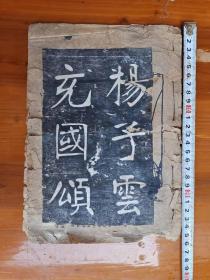 楊子雲
充國頌